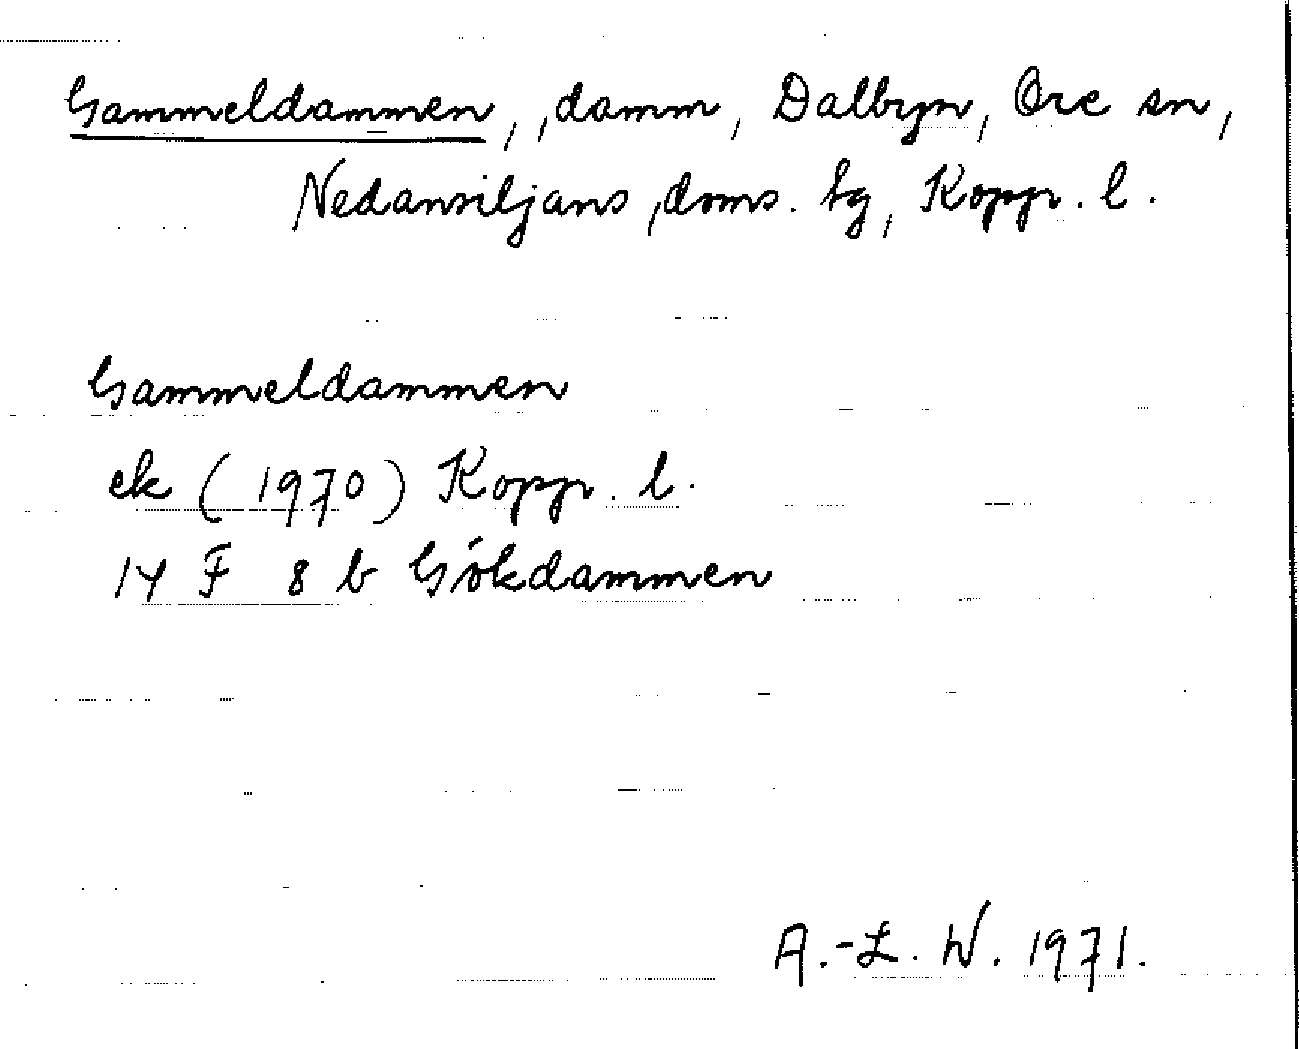 Gammeldammen, ,damm, Dalbyn, Ore sn,
Nedansiljans ,doms. sg, Koppr. l.
Gammeldammen
ek (1970) Koppr. l.
14 F 8 b Gökdammen
A.-L. W. 1971.